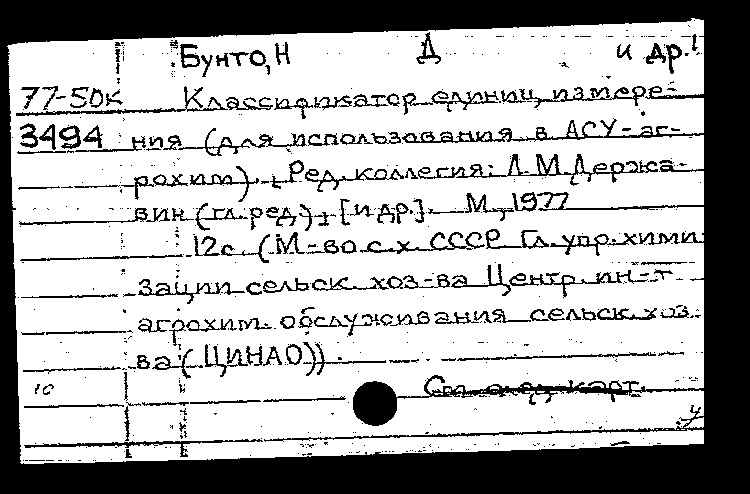 Бунто, Н Д и др.
77-50к Классификатор единиц измере-
3494 ния (для использования в АСУ-аг-
рохим). Ред. коллегия: Л.М. Держа-
вин (гл. ред.), [и др.]. М., 1977
12с. (М-во с.х. СССР Гл. упр. хими
зации сельск. хоз-ва Центр. ин-т
агрохим. обслуживания сельск. хоз.
ва (ЦИНАО)).
10 См. след. карт.